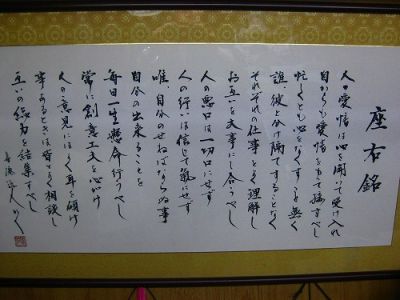 座右銘
人の愛情は心を開いて受け入れ
自からも愛情をもて接すべし
忙しくとも心をくすこと無く
誰、彼と分け隔てすることなく
それぞれの仕事をよく理解し
お互いを大事にし合うべし
人の悪口は一切口にせず
人の行いは信じて疑にせず
唯、自分のせねばならぬ事
自分の出来ることを
毎日一生懸命行うべし
常に創意工夫を心がけ
人の意見にはよく耳を傾け
事あるときは皆でよく相談し
互いの総力を結集すべし